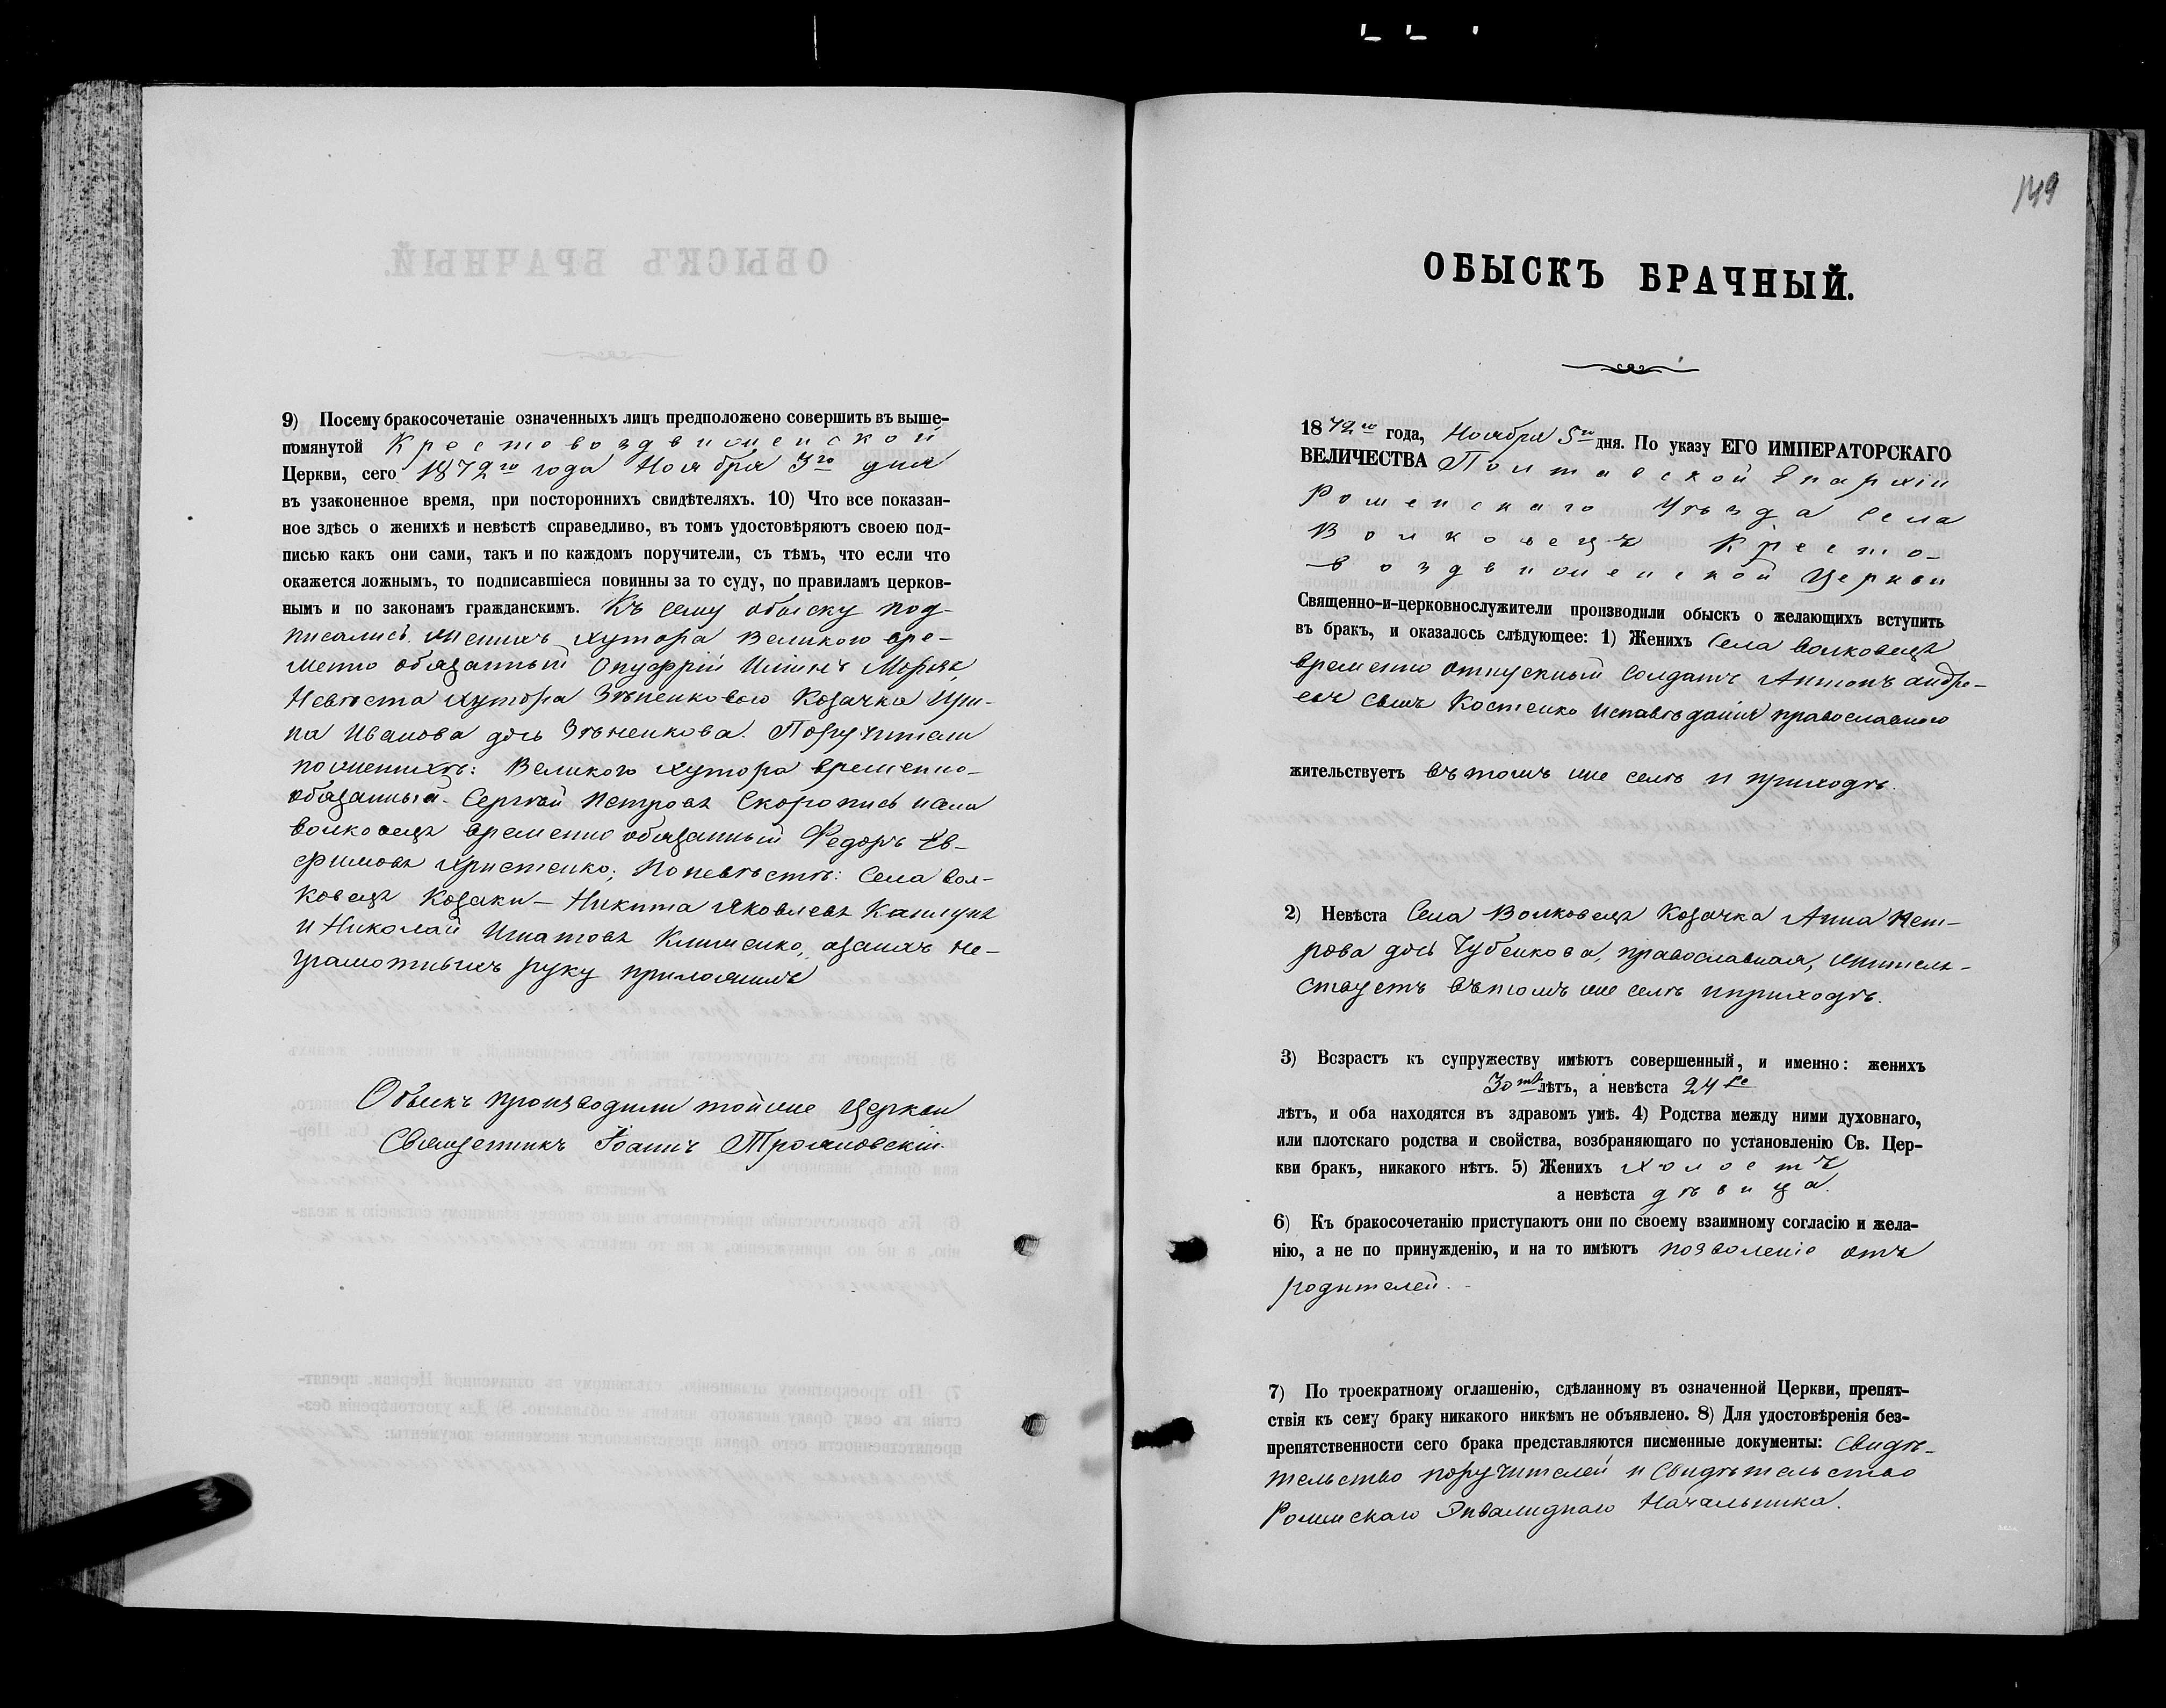 9) Посему бракосочетаніе означенныхъ лицъ предположено совершить въ выше-
помянутой Крестовоздвиженской
Церкви, сего 1872го года Ноября 3го дня
въ узаконенное время, при постороннихъ свидѣтеляхъ. 10) Что все показан-
ное здѣсь о женихѣ и невѣстѣ справедливо, въ томъ удостовѣряютъ своею под-
писью какъ они сами, такъ и по каждомъ поручители, съ тѣмъ, что если что
окажется ложнымъ, то подписавшіеся повинны за то суду, по правиламъ церков-
нымъ и по законамъ гражданскимъ. Къ сему обыску под-
писались женихъ хутора Великого вре-
менно обязанный Онуфрій Ильинъ Моряк,
Невѣста хутора Зѣненкового Козачка Ири-
на Иванова дочь Зѣненкова. Поручители
по женихѣ: Великого хутора временно-
обязанный Сергѣй Петровъ Скоропись и села
Волковецъ временно обязанный Федоръ Ев-
фимовъ Христенко; По невѣстѣ: Села Вол-
ковецъ Козаки – Никита Яковлевъ
и Николай Игнатовъ Клименко, а за ихъ не-
грамотныхъ руку приложилъ
Обыскъ производили той же Церкви
Священникъ Іоаннъ Трояновскій.
149
ОБЫСКЪ БРАЧНЫЙ.
1872го года, Ноября 5го дня. По указу ЕГО ИМПЕРАТОРСКАГО
ВЕЛИЧЕСТВА Полтавской Епархіи
Роменскаго Уѣзда Села
Волковецъ Кресто-
воздвиженской Церкви
Священно-и-церковнослужители производили обыскъ о желающихъ вступить
въ бракъ, и оказалось слѣдующее: 1) Женихъ Села Волковецъ
временно отпускный Солдатъ Антонъ Андре-
евъ сынъ Костенко Исповѣданія православного
жительствуетъ въ томъ же селѣ и приходѣ.
2) Невѣста Села Волковецъ Козачка Анна Пет-
рова дочь Чубенкова, православная, жительс-
твуетъ въ томъ же селѣ и приходѣ.
3) Возрастъ къ супружеству имѣютъ совершенный, и именно: женихъ
30ть лѣтъ, а невѣста 24ре
лѣтъ, и оба находятся въ здравомъ умѣ. 4) Родства между ними духовнаго,
или плотскаго родства и свойства, возбраняющаго по установленію Св. Цер-
кви бракъ, никакого нѣтъ. 5) Женихъ холостъ
а невѣста дѣвица.
6) Къ бракосочетанію приступаютъ они по своему взаимному согласію и жела-
нію, а не по принужденію, и на то имѣютъ позволеніе отъ
родителей.
7) По троекратному оглашенію, сдѣланному въ означенной Церкви, препят-
ствія къ сему браку никакого никѣмъ не объявлено. 8) Для удостовѣренія без-
препятственности сего брака представляются писменные документы: Свидѣ-
тельство поручителей и Свидѣтельство
Роменскаго Энвалиднаго Начальника.